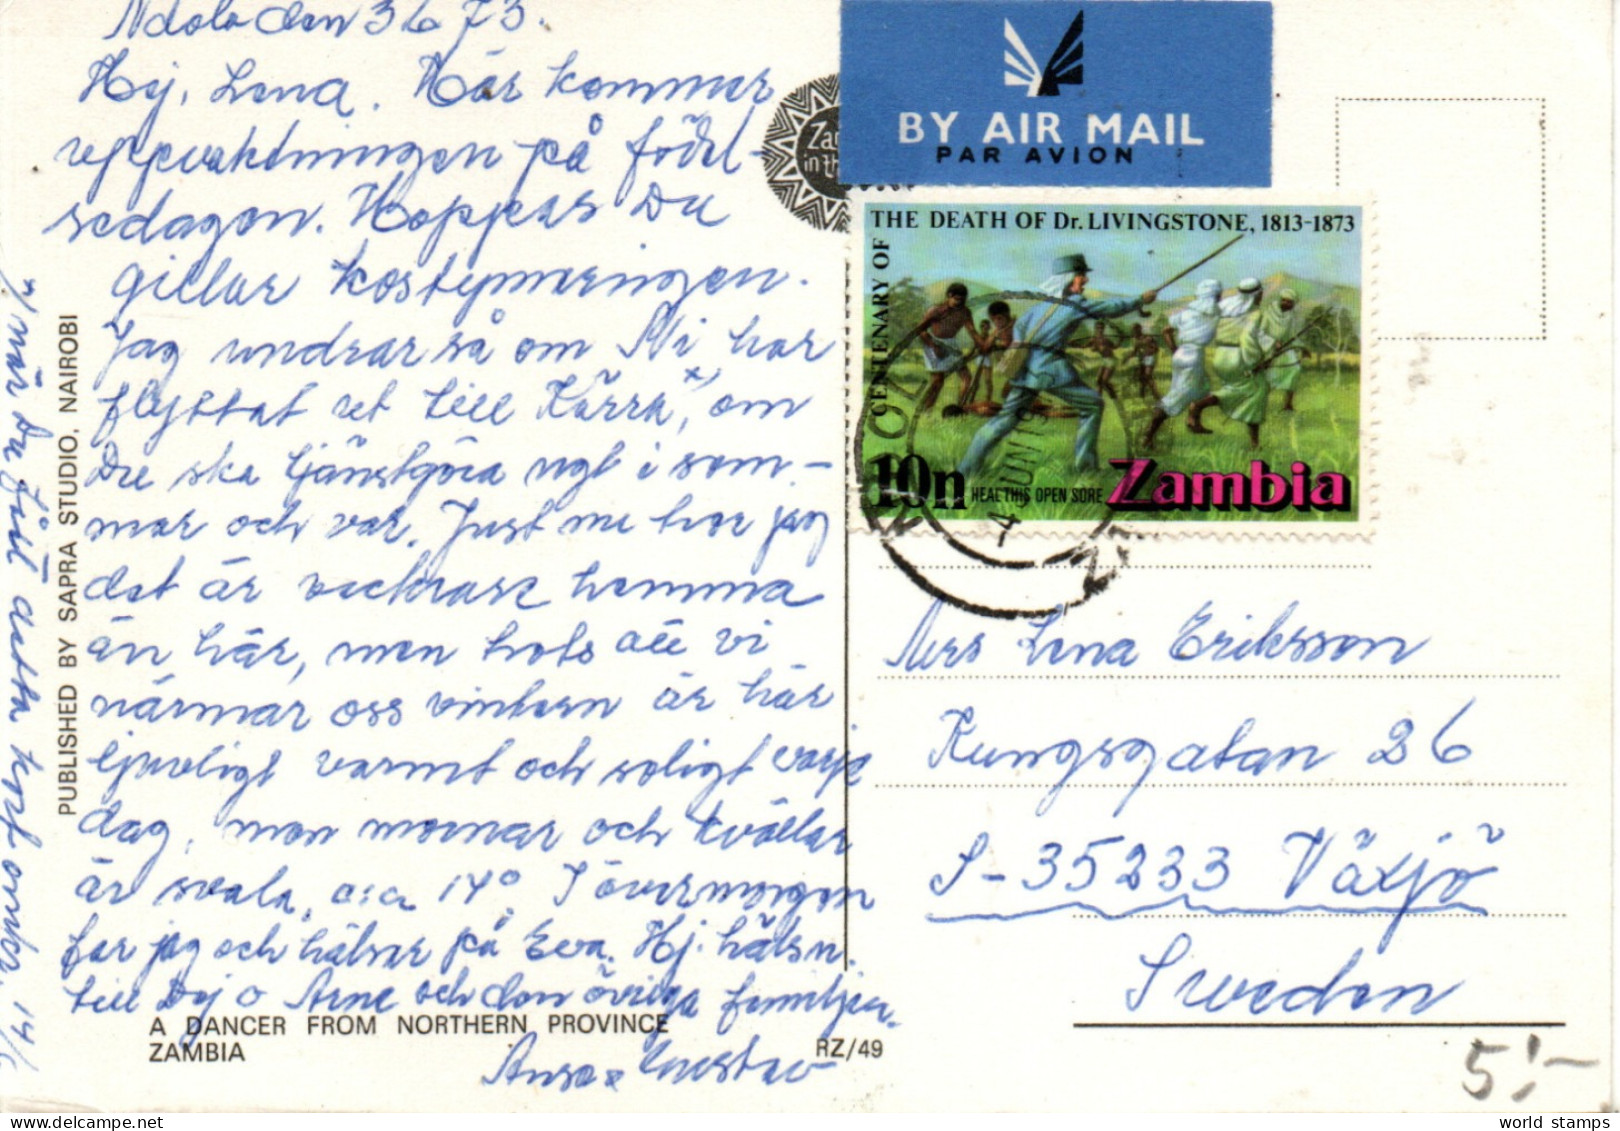 Ndola den 3 6 73.
Hej, Lena. Här kommer
uppvaktningen på födel-
sedagen. Hoppas Du
gillar kostymeringen.
Jag undrar så om Ni har
flyttat ut till Kärra x), om
Du ska tjänstgöra ngt i som-
mar och var. Just nu tror jag
det är vackrare hemma
än här, men trots att vi
närmar oss vintern är här
ljuvligt varmt och soligt varje
dag, men mornar och kvällar
är svala, c:a 14° I övermorgen
far jag och hälsar på Eva. Hj. hälsn.
till Dej o Arne och den övriga familjen.
Gustav
x) när Du fått detta kort önker, 14/6
PUBLISHED BY SAPRA STUDIO, NAIROBI
A DANCER FROM NORTHERN PROVINCE
ZAMBIA
RZ/49
BY AIR MAIL
PAR AVION
CENTENARY OF THE DEATH OF Dr. LIVINGSTONE, 1813-1873
10n HEAL THIS OPEN SORE Zambia
4 JUN 19
Mrs Lena Eriksson
Kungsgatan 26
S-35233 Växjö
Sweden
5:-
world stamps